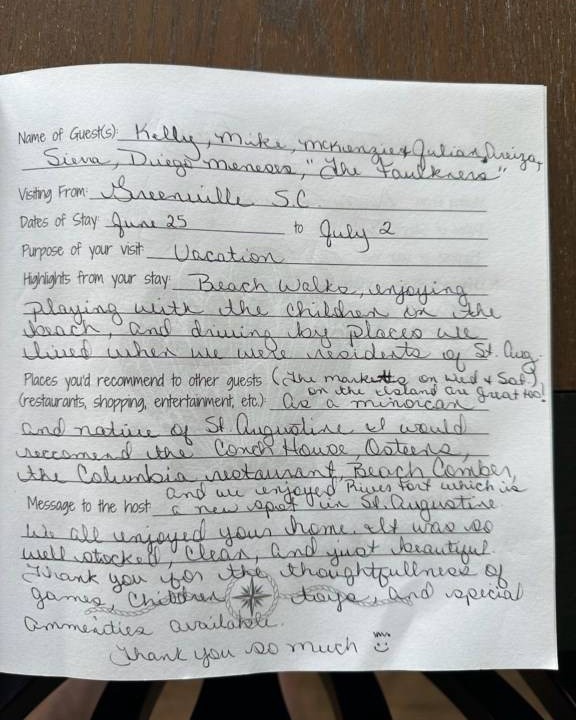 Name of Guest(s): Kelly, Mike, McKienzie & Julian, Dreiza,
Siena, Diego Meneses, "The Faulkners"
Visiting From: Greenville S.C.
Dates of Stay: June 25 to July 2
Purpose of your visit: Vacation
Highlights from your stay: Beach Walks, enjoying
playing with the children on the
beach, and driving by places we
lived when we were residents of St. Aug.
Places you'd recommend to other guests (The markets on Wed & Sat.)
on the island are great too!
(restaurants, shopping, entertainment, etc.): As a minorcan
and native of St. Augustine I would
reccomend the Conch House, Osteens,
the Columbia restaurant, Beach Comber,
and we enjoyed River Fort which is
Message to the host: a new spot in St. Augustine.
We all enjoyed your home. It was so
well stocked, clean, and just beautiful.
Thank you for the thoughtfullness of
games, Children toys, and special
ammenities available.
Thank you so much